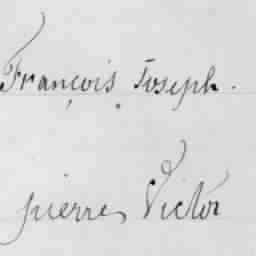 François Joseph.
pierre Victor